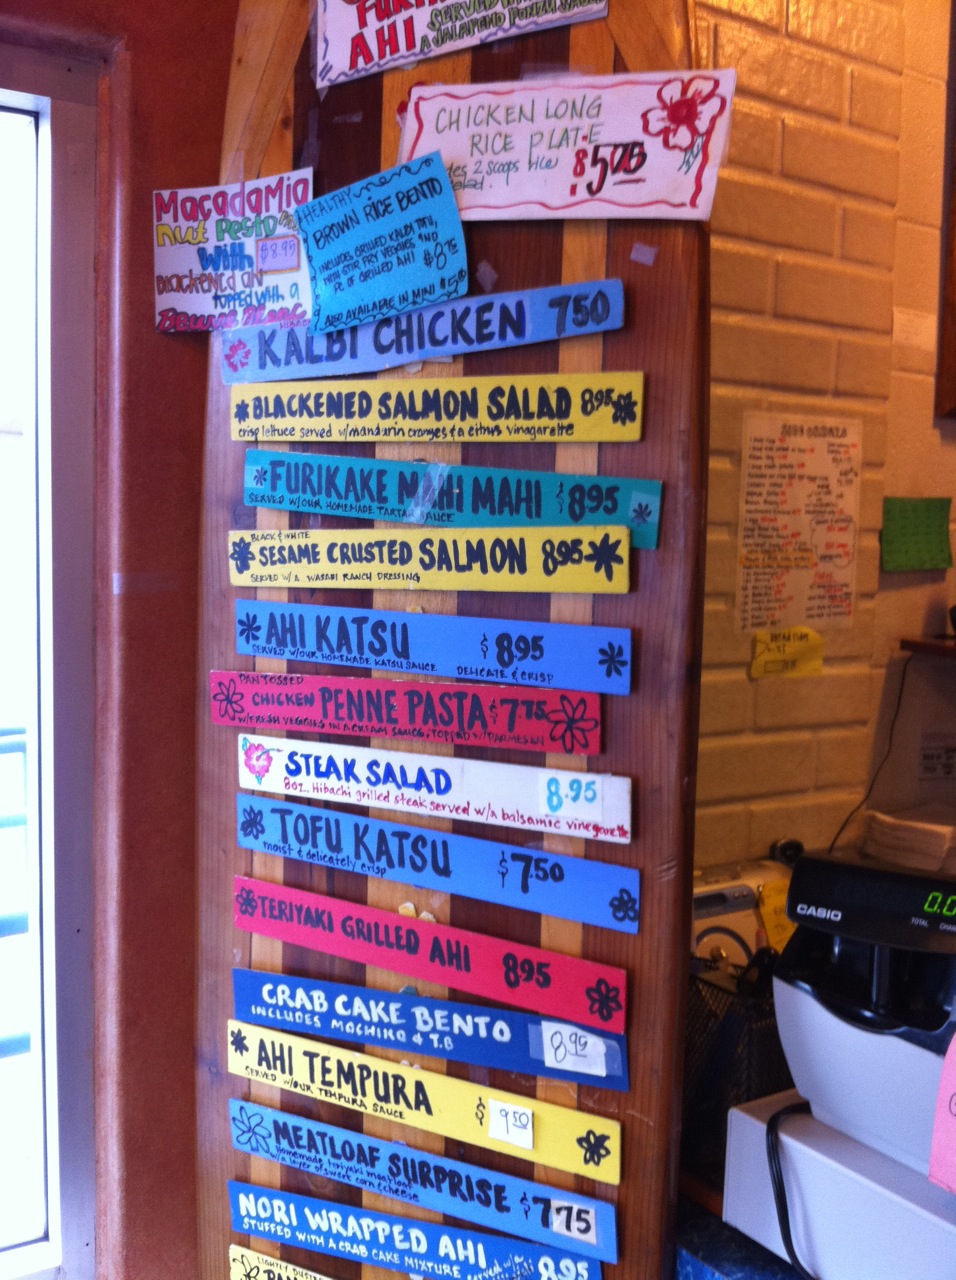 AHI
SERVED
A JALAPENO PONZU
CHICKEN LONG
RICE PLATE
2 scoops rice
$5.75
Macadamia
Nut Pesto
With $8.95
Blackened
topped with a
Beurre Blanc
HEALTHY
BROWN RICE BENTO
INCLUDES GRILLED KALBI TOFU
WITH STIR FRY VEGGIES AND
PC OF GRILLED AHI $8.75
ALSO AVAILABLE IN MINI
KALBI CHICKEN 7.50
BLACKENED SALMON SALAD 8.95
crisp lettuce served w/mandarin oranges & a citrus vinagarette
FURIKAKE MAHI MAHI $8.95
SERVED W/OUR HOMEMADE TARTAR SAUCE
BLACK & WHITE
SESAME CRUSTED SALMON 8.95
SERVED W/ A WASABI RANCH DRESSING
AHI KATSU $8.95
SERVED W/OUR HOMEMADE KATSU SAUCE DELICATE & CRISP
PAN TOSSED
CHICKEN PENNE PASTA $7.75
W/FRESH VEGGIES IN A CREAM SAUCE, TOPPED W/PARMESAN
STEAK SALAD 8.95
8oz. Hibachi grilled steak served w/a balsamic vinegarette
TOFU KATSU $7.50
moist & delicately crisp
TERIYAKI GRILLED AHI 8.95
CRAB CAKE BENTO 8.95
INCLUDES MOCHIKO & T.B
AHI TEMPURA $9.50
SERVED W/OUR TEMPURA SAUCE
MEATLOAF SURPRISE $7.75
Homemade teriyaki meatloaf
w/a layer of sweet corn & cheese
NORI WRAPPED AHI 8.95
STUFFED WITH A CRAB CAKE MIXTURE served w/
LIGHTLY
CASIO
0.0
TOTAL